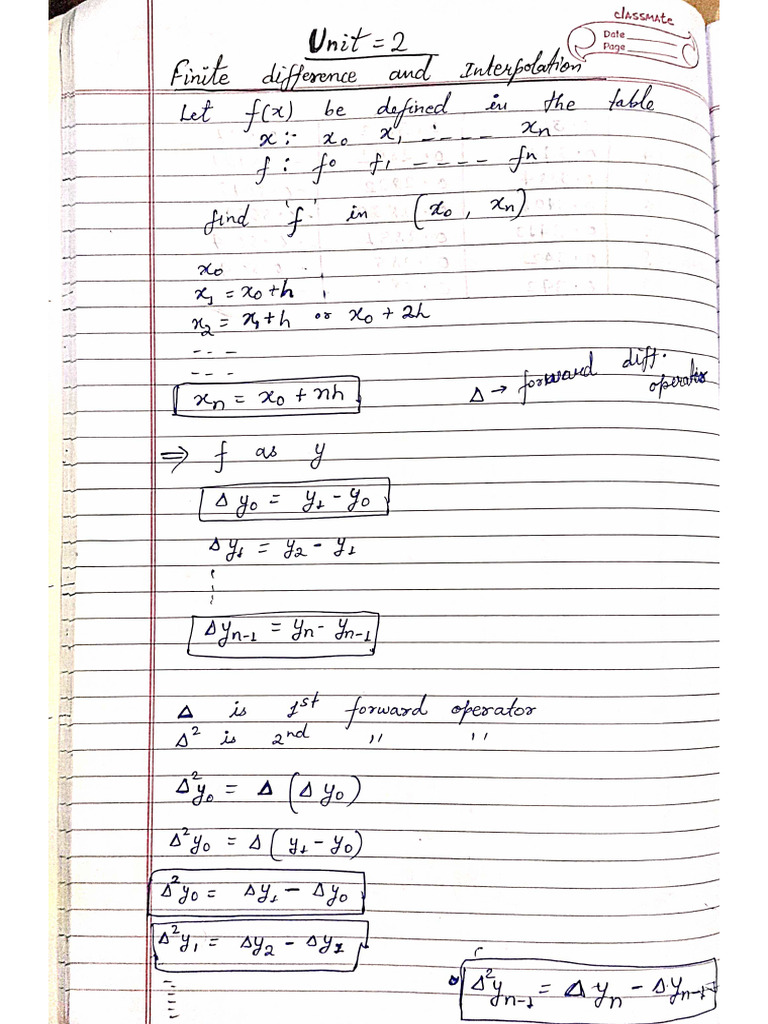 classmate
Date
Page
Unit = 2
Finite difference and Interpolation
Let f(x) be defined in the table
x :- x₀ x₁ ---- xₙ
f : f⁰ f₁ ---- fⁿ
find 'f' in (x₀ , xₙ)
x₀
x₁ = x₀+h
x₂ = x₁+h or x₀ + 2h
---
---
xₙ = x₀ + nh
Δ → forward diff. operator
⇒ f as y
Δ y₀ = y₁ - y₀
Δ y₁ = y₂ - y₁
Δyₙ₋₁ = yₙ - yₙ₋₁
Δ is 1st forward operator
Δ² is 2nd ,, ,,
Δ²y₀ = Δ (Δ y₀)
Δ²y₀ = Δ ( y₁ - y₀)
Δ²y₀ = Δy₁ - Δy₀
Δ²y₁ = Δy₂ - Δy₁
Δ²yₙ₋₁ = Δ yₙ - Δyₙ₋₁